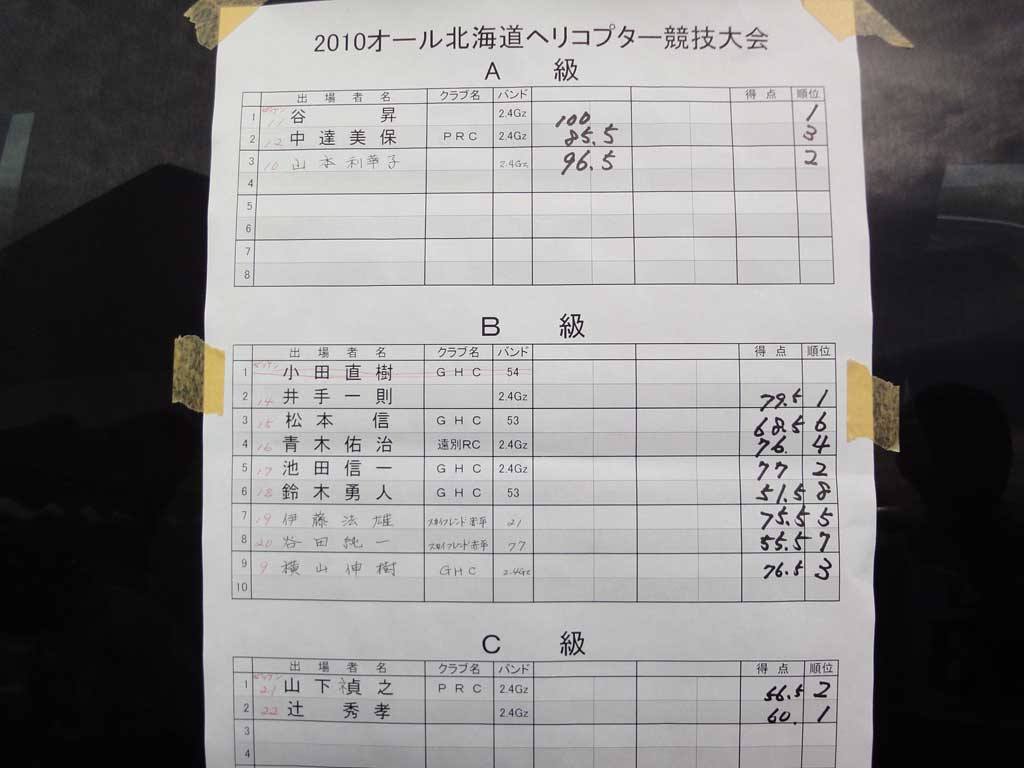 2010オール北海道ヘリコプター競技大会
A 級
出場者名 クラブ名 バンド 得点 順位
ゼッケン
1 11 谷 昇 2.4Gz 100 1
2 12 中達美保 PRC 2.4Gz 85.5 3
3 10 山本利華子 2.4Gz 96.5 2
4
5
6
7
8
B 級
出場者名 クラブ名 バンド 得点 順位
ゼッケン
1 小田直樹 GHC 54
2 14 井手一則 2.4Gz 79.5 1
3 15 松本 信 GHC 53 68.5 6
4 16 青木佑治 遠別RC 2.4Gz 76. 4
5 17 池田信一 GHC 2.4Gz 77 2
6 18 鈴木勇人 GHC 53 51.5 8
7 19 伊藤法雄 スカイフレンド赤平 21 75.5 5
8 20 谷田純一 スカイフレンド赤平 77 55.5 7
9 9 横山伸樹 GHC 2.4Gz 76.5 3
10
C 級
出場者名 クラブ名 バンド 得点 順位
ゼッケン
1 21 山下禎之 PRC 2.4Gz 56.5 2
2 22 辻 秀孝 2.4Gz 60. 1
3
4